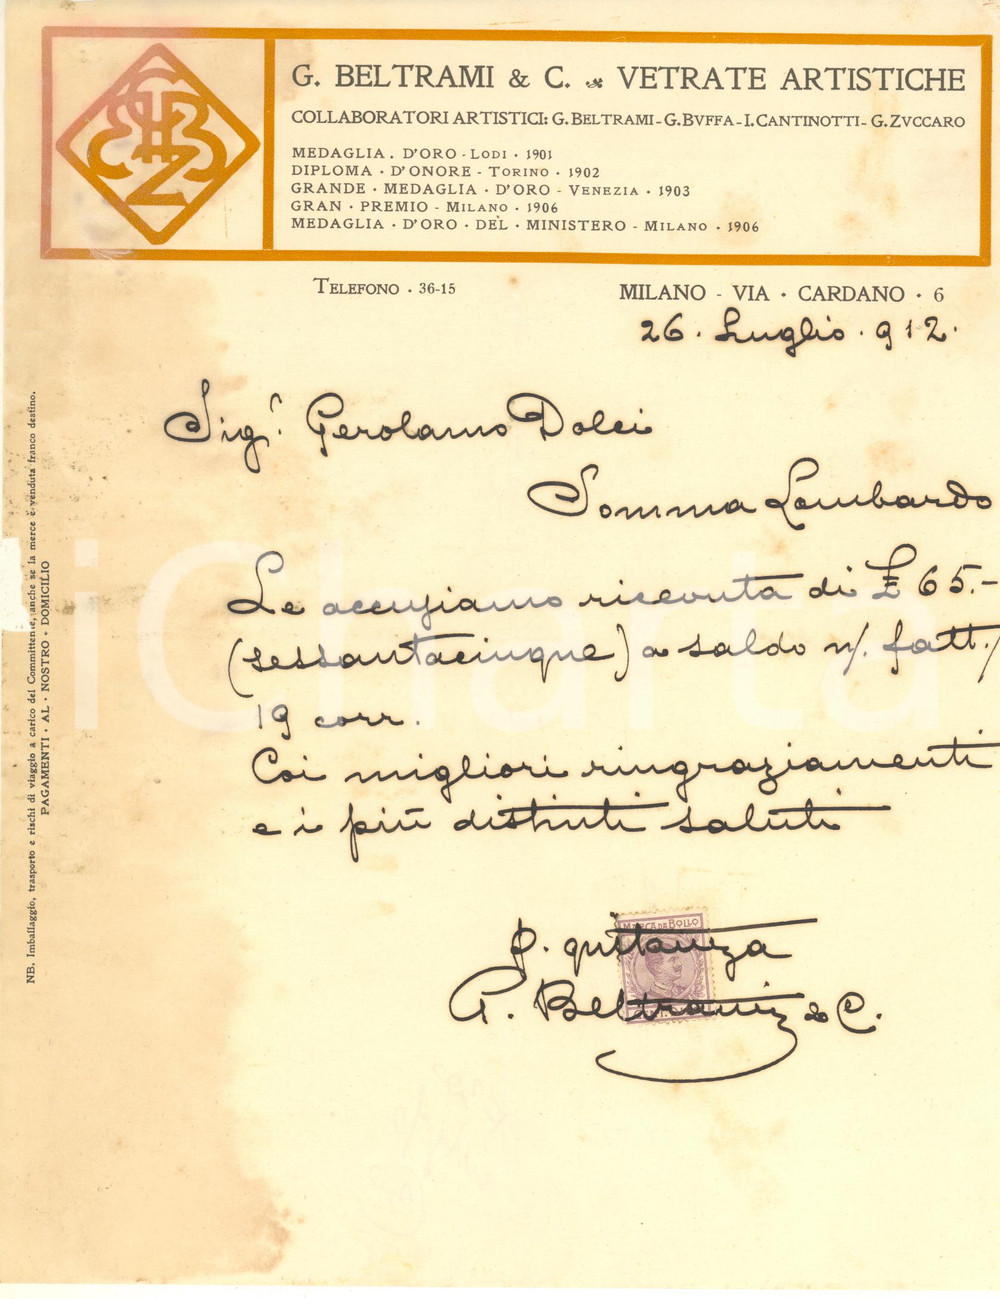 G. BELTRAMI & C. VETRATE ARTISTICHE
COLLABORATORI ARTISTICI: G. BELTRAMI - G. BVFFA - I. CANTINOTTI - G. ZVCCARO
MEDAGLIA . D'ORO - LODI · 1901
DIPLOMA · D'ONORE - TORINO · 1902
GRANDE · MEDAGLIA · D'ORO - VENEZIA · 1903
GRAN · PREMIO - MILANO · 1906
MEDAGLIA · D'ORO · DEL · MINISTERO - MILANO · 1906
TELEFONO · 36-15
MILANO - VIA · CARDANO · 6
26. Luglio. 912.
Sigr. Gerolamo Dolci
Somma Lombardo
Le accusiamo ricevuta di £ 65.-
(sessantacinque) a saldo n/. fatt./
19 corr.
Coi migliori ringraziamenti
e i più distinti saluti
MARCA DA BOLLO
p. quitanza
G. Beltrami & C.
NB. Imballaggio, trasporto e rischi di viaggio a carico del Committente, anche se la merce è venduta franco destino.
PAGAMENTI · AL · NOSTRO · DOMICILIO
iCharta